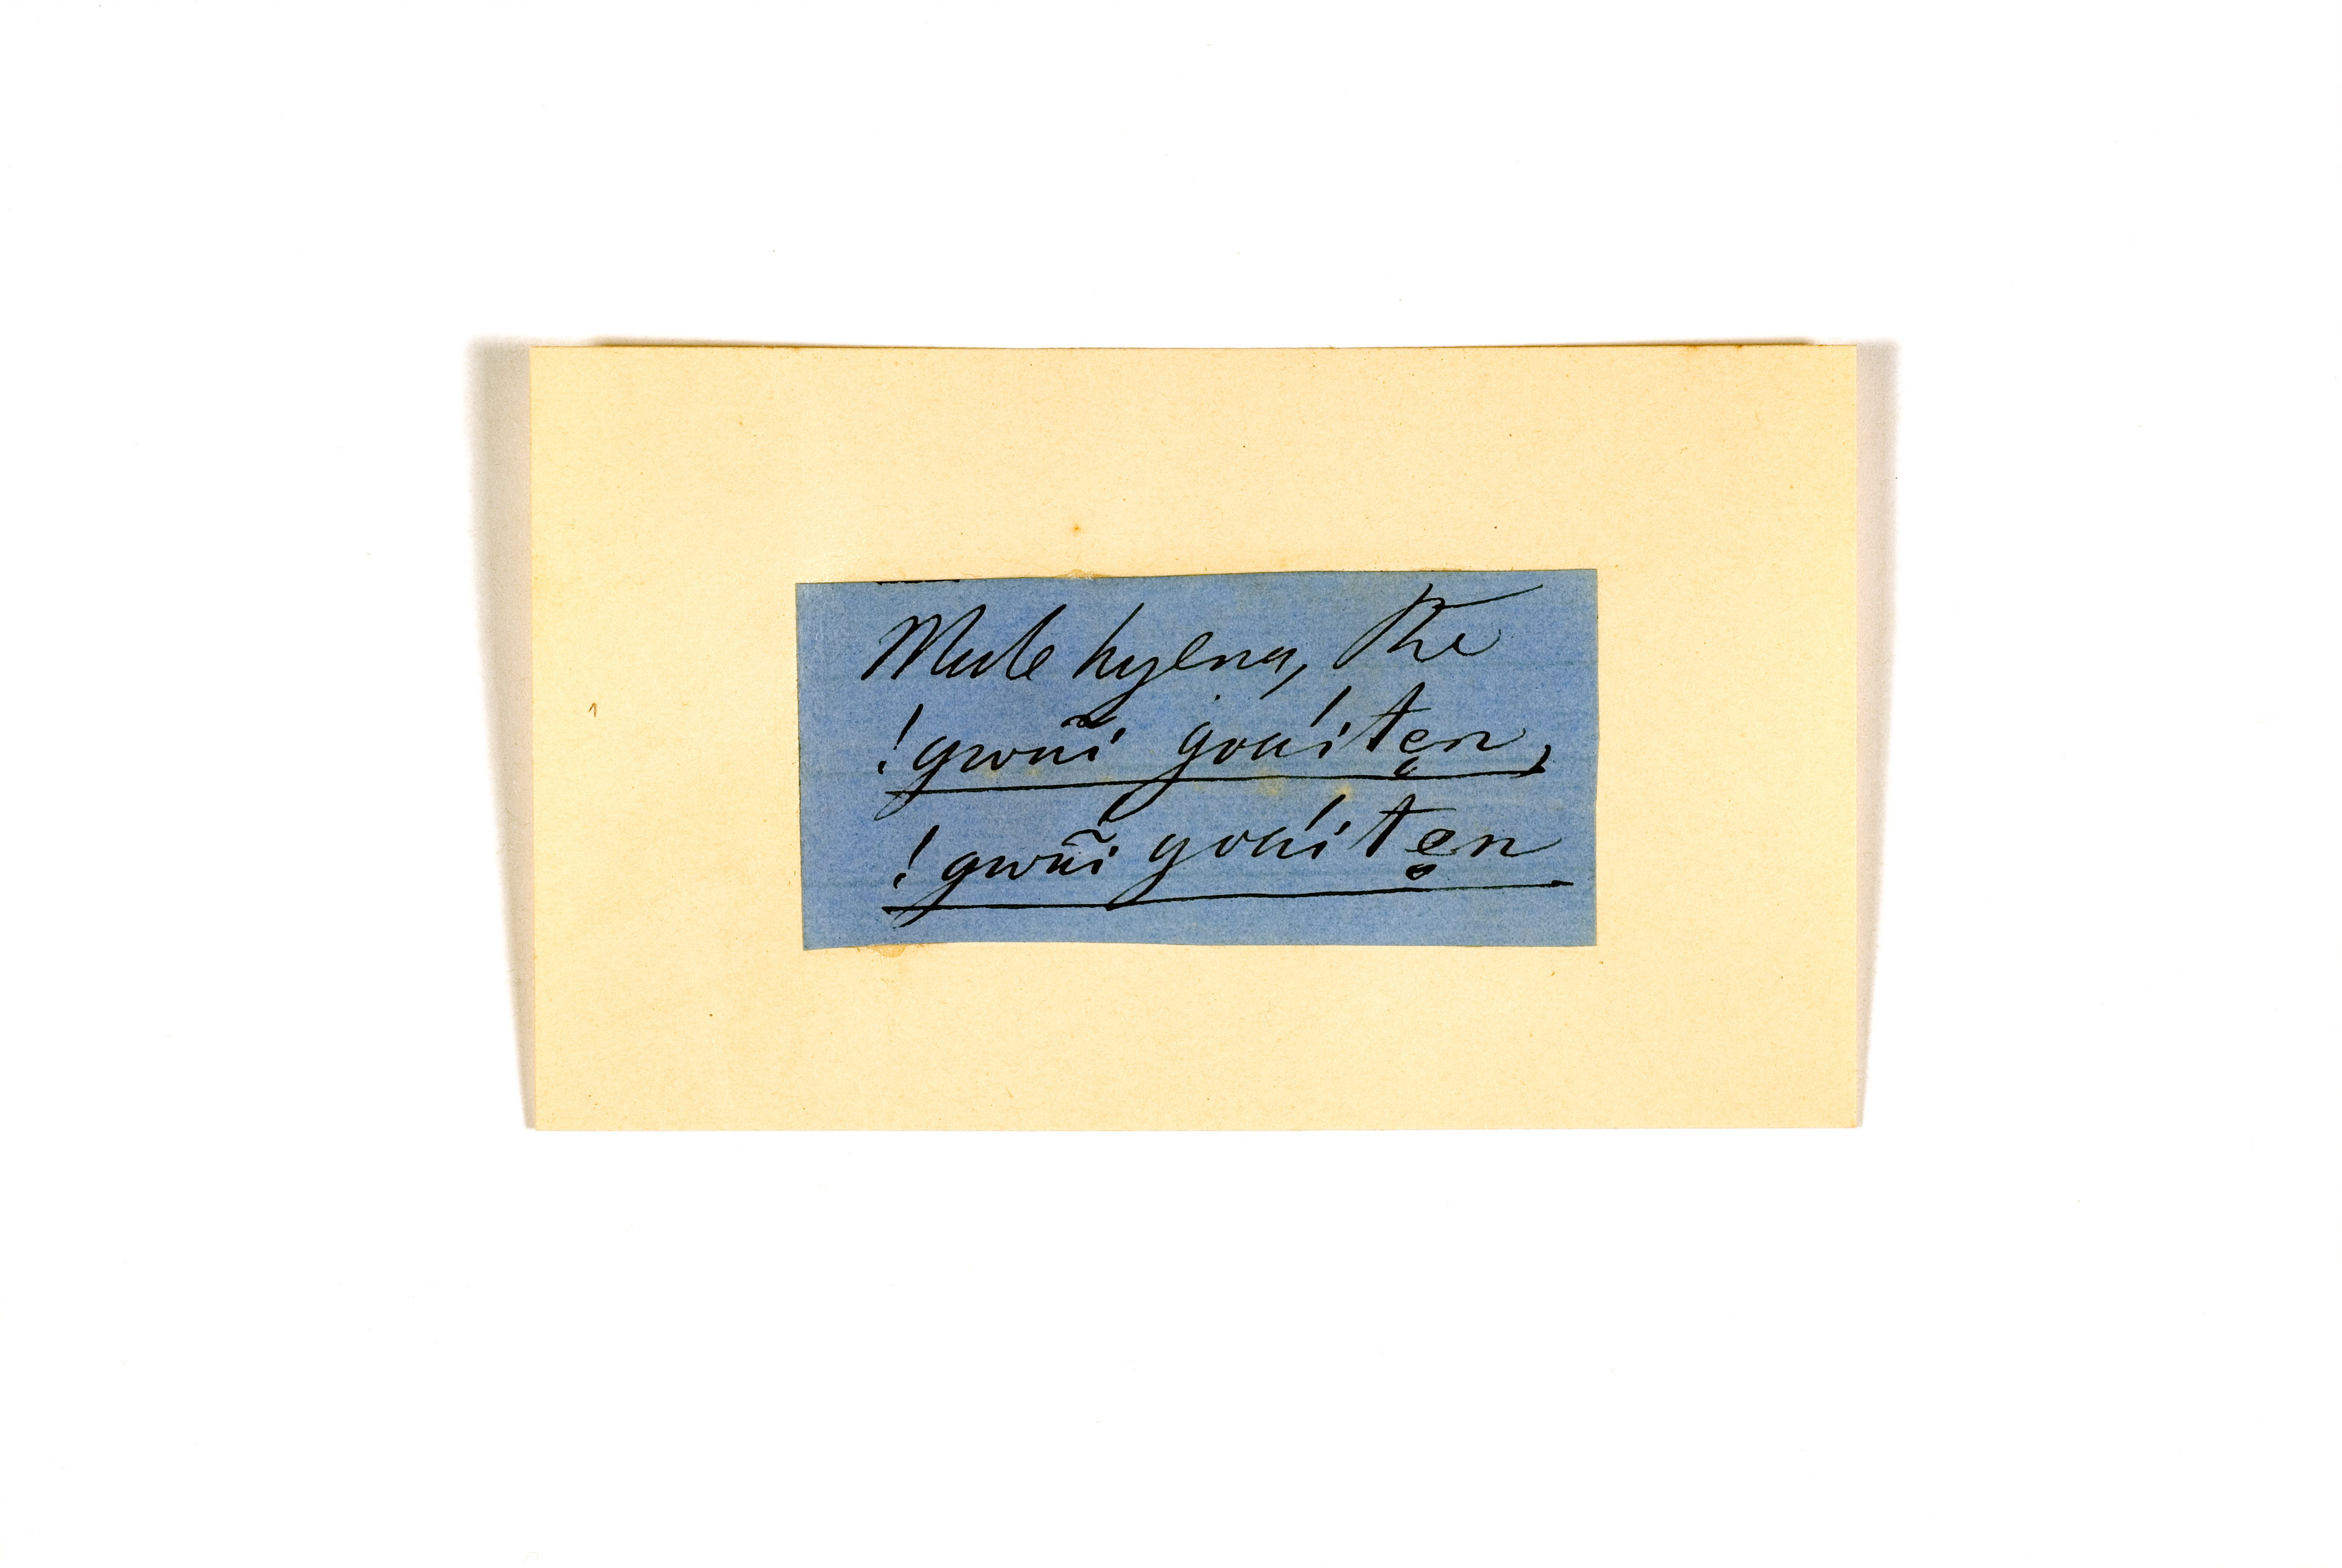 Male hyena, the
!gwaĩ goáitẹn,
!gwaĩ goáitẹn